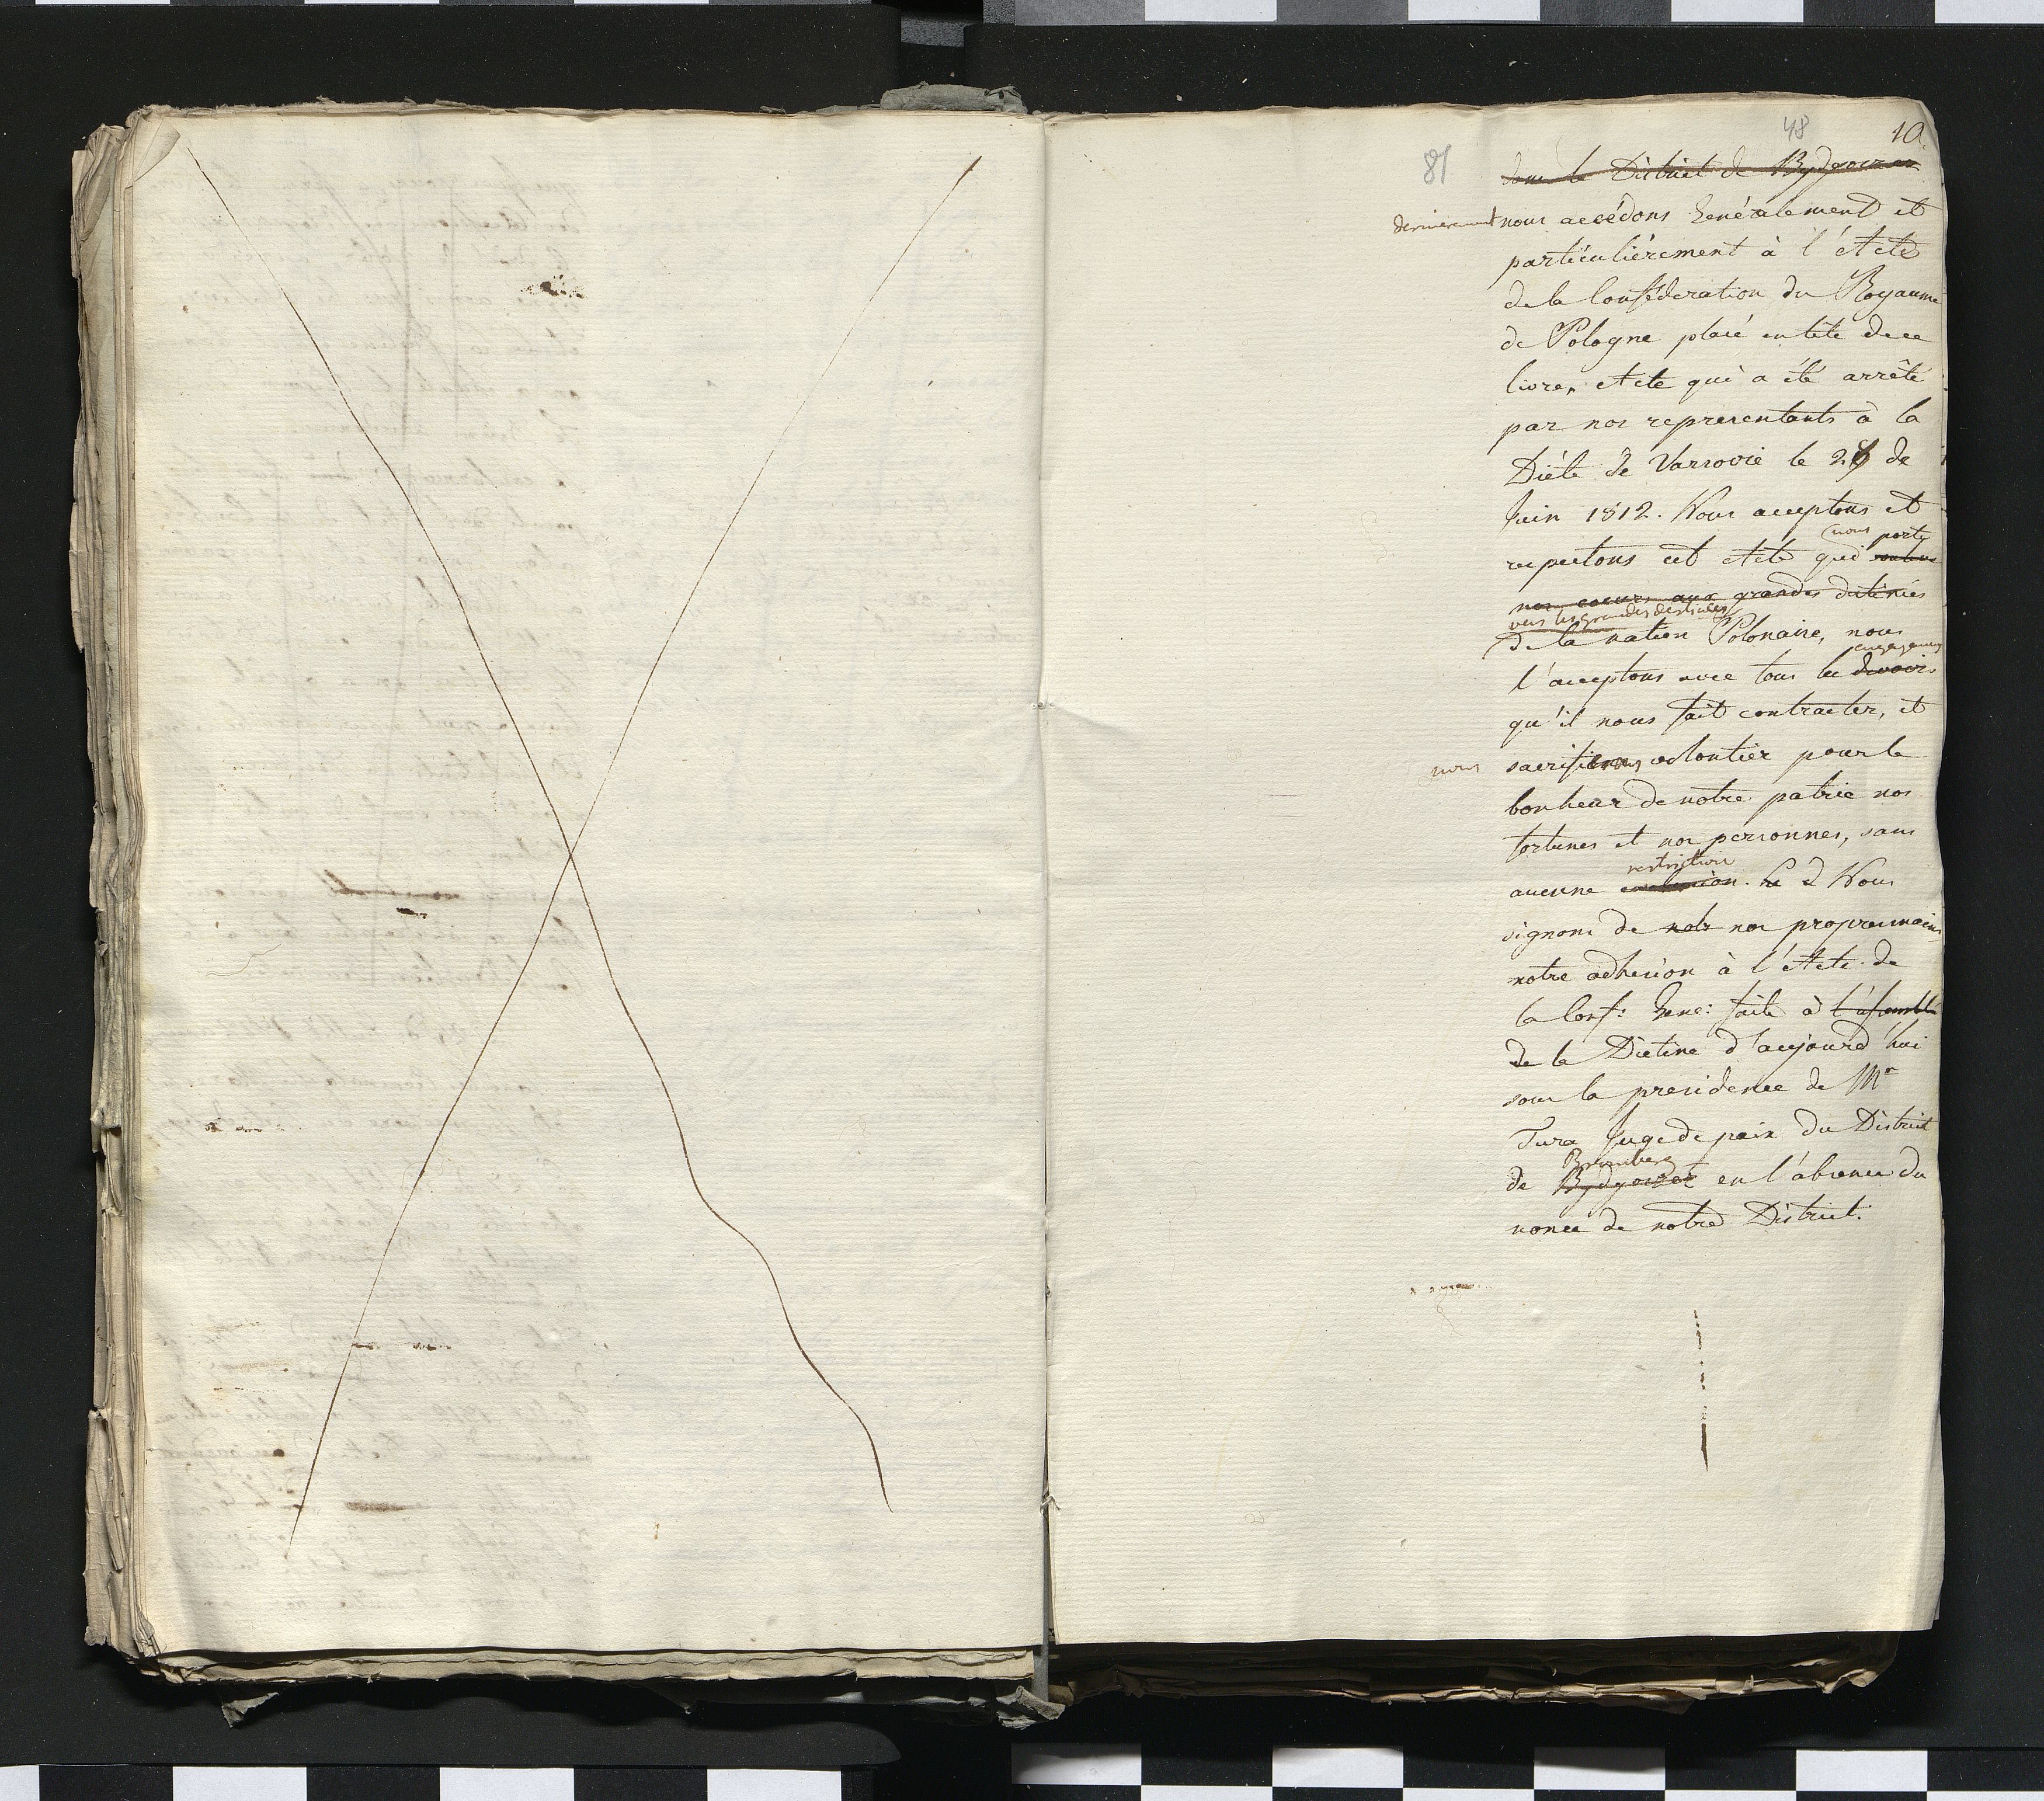 48
10
81
dans le District de Bydgoszcz
dernierement nous accédons Généralement et
particuliérement à l'Acte
de la Conféderation du Royaume
de Pologne placé en tête de ce
livre, Acte qui a été arrêté
par nos representants à la
Diéte de Varsovie le 28 de
Juin 1812. Nous acceptons et
nous porte
respectons cet Acte qui
nos coeurs aux grandes destinés
vers les grandes destinées
de la nation Polonaise, nous
engagemens
l'acceptons avec tous les devoirs
qu'il nous fait contracter, et
nous sacrifierons volontier pour le
bonheur de notre patrie nos
fortunes et nos personnes, sans
restriction
aucune exclusion. Nous
signons de nos propres mains
notre adhesion à l'Acte de
la Conf: Gene: faite à l'assemblé
de la Diétine d'aujourd'hui
sous la presidence de Mr
Tura Juge de paix du District
Bromberg
de Bydgoszcz en l'absence du
nonce de notre District.